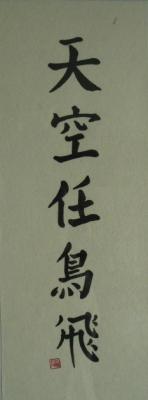 天空任鳥飛